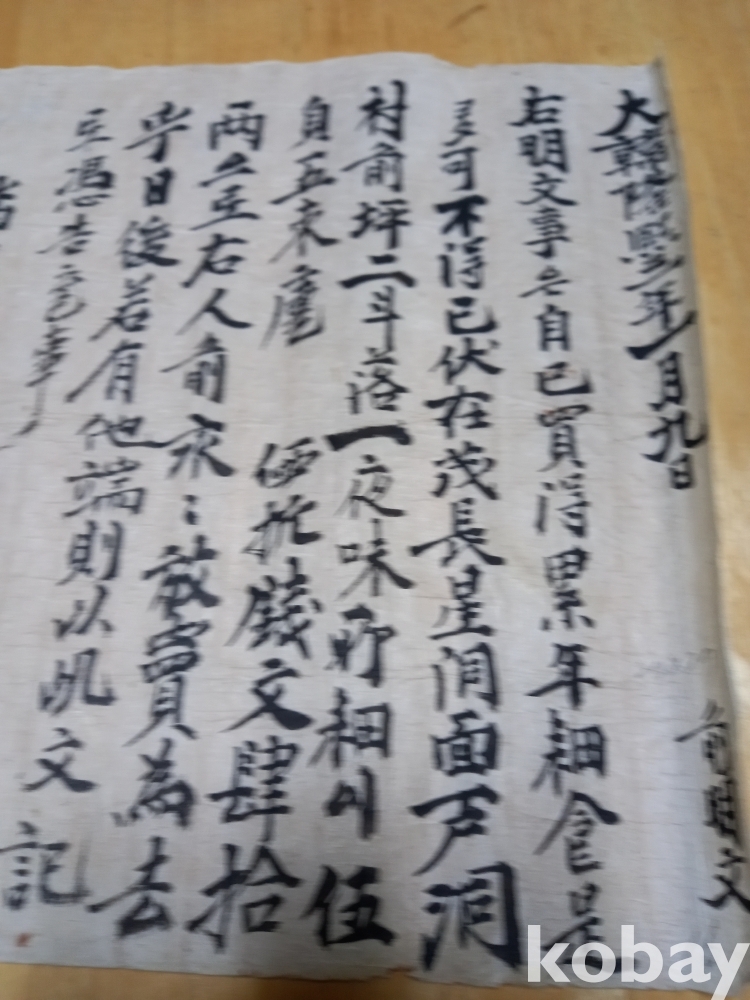 大韓隆熙二年一月九日 前明文
右明文事段自己買淂累年耕食是
多可不淂已伏在茂長星洞面芦洞
村前坪二斗落一夜味卯耕叫伍
負五束庫 価折錢文肆拾
両乙互右人前永〻放賣為去
乎日後若有他端則以此文記
互憑告官事
kobay